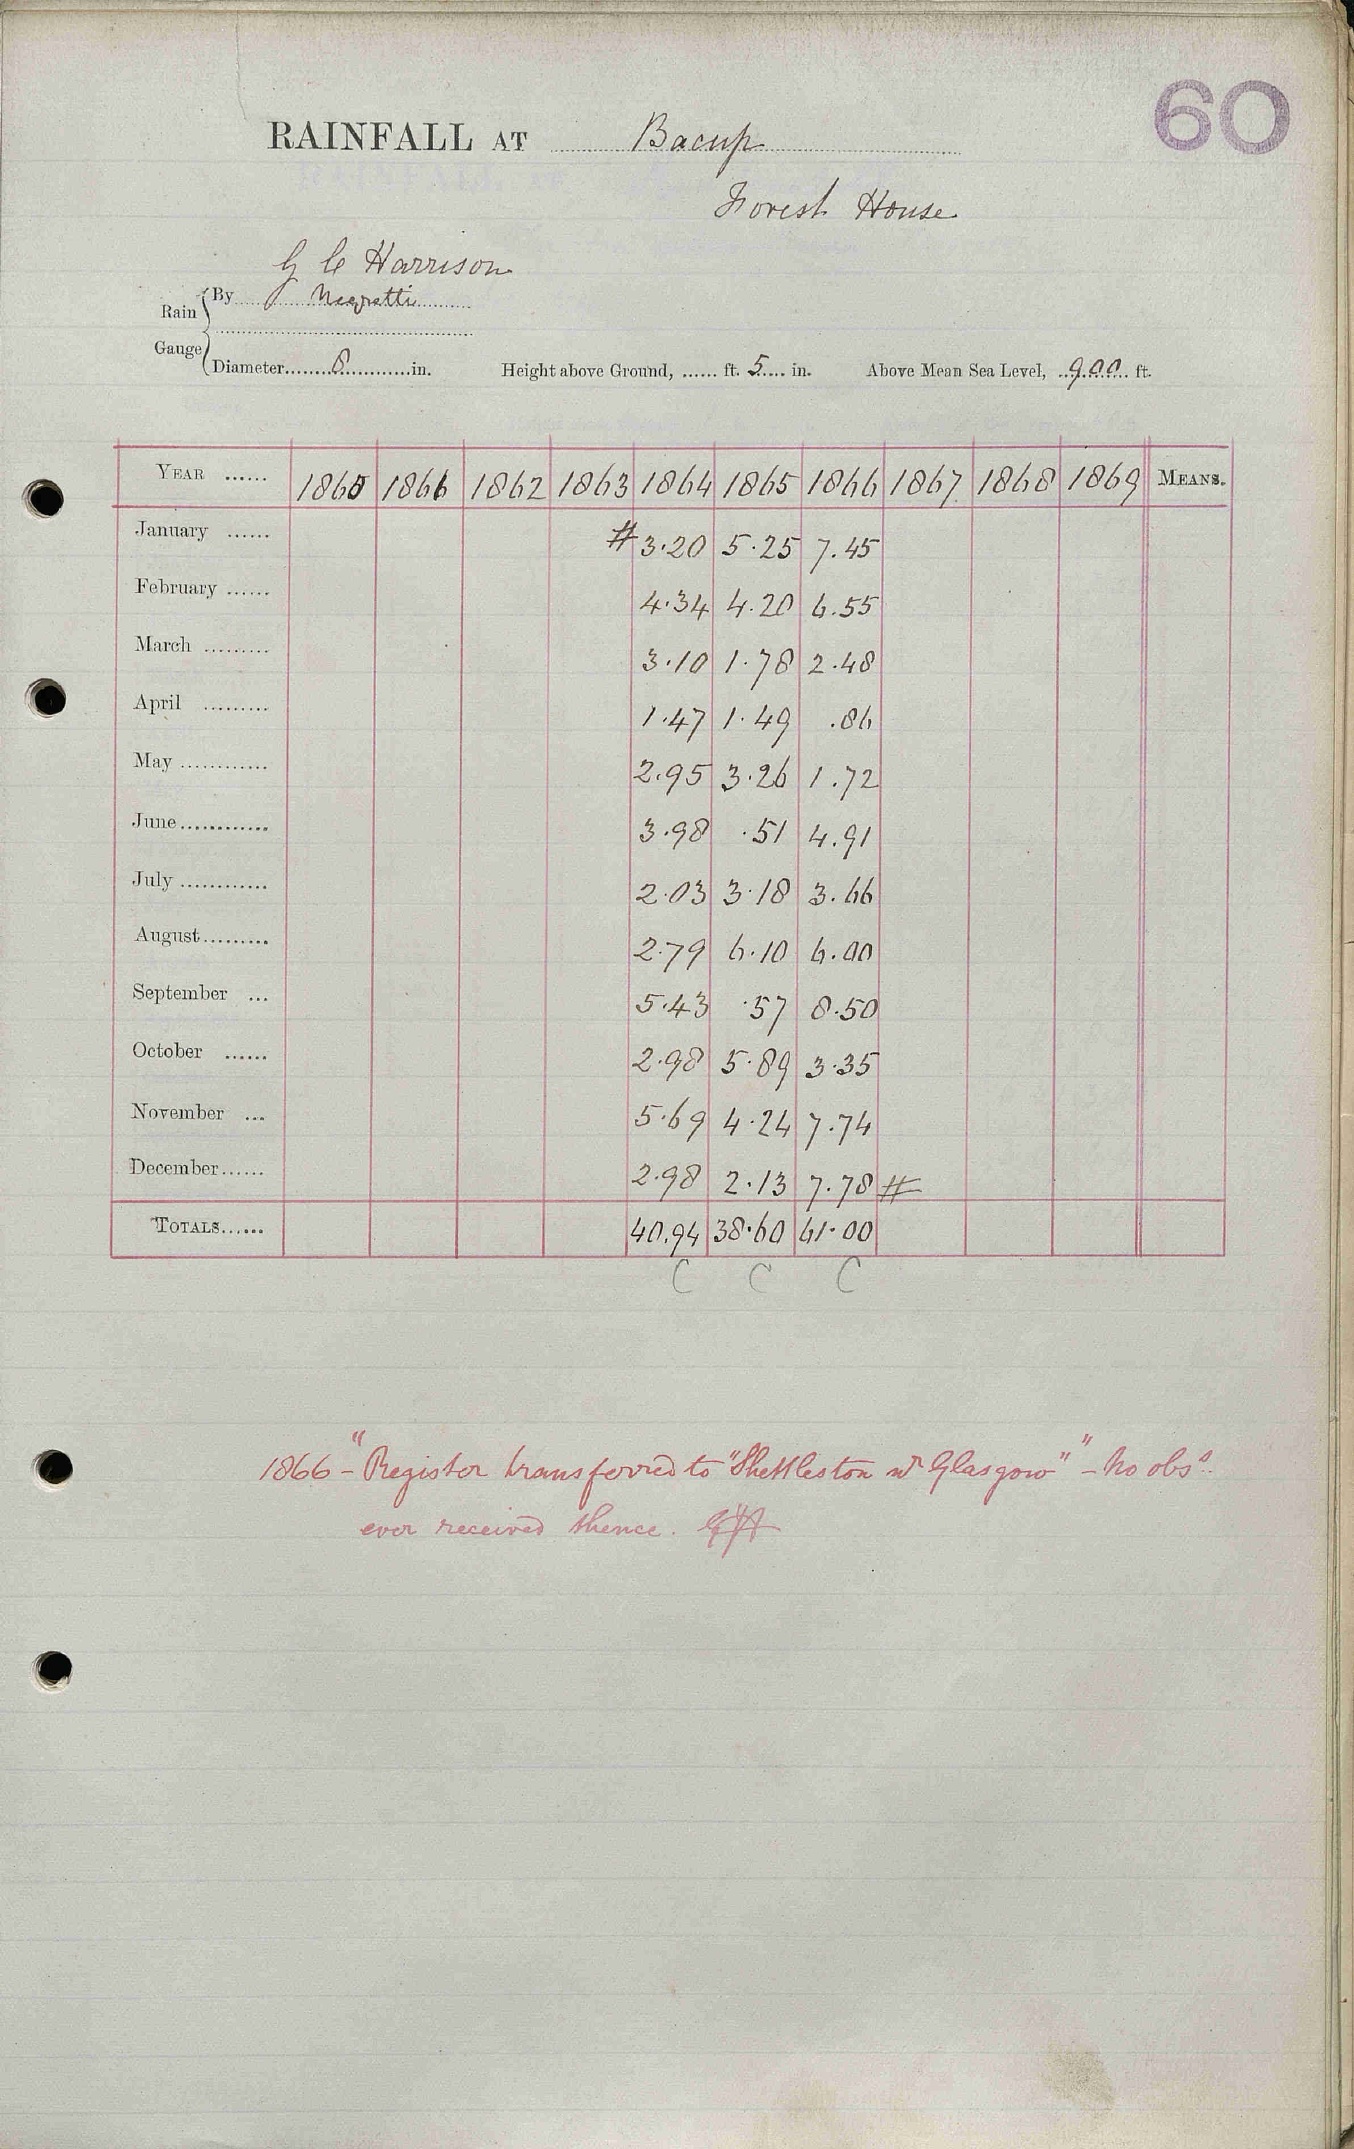 60
RAINFALL AT Bacup
Forest House
G C Harrison
Rain Gauge By Negretti
Diameter 8 in. Height above Ground, ...... ft. 5 in. Above Mean Sea Level, 900 ft.
YEAR ...... 1860 1861 1862 1863 1864 1865 1866 1867 1868 1869 MEANS.
January ...... # 3.20 5.25 7.45
February ...... 4.34 4.20 6.55
March ......... 3.10 1.78 2.48
April ......... 1.47 1.49 .86
May ............ 2.95 3.26 1.72
June ............ 3.98 .51 4.91
July ............ 2.03 3.18 3.66
August ......... 2.79 6.10 6.00
September ... 5.43 .57 8.50
October ...... 2.98 5.89 3.35
November ... 5.69 4.24 7.74
December ...... 2.98 2.13 7.78 #
TOTALS ...... 40.94 38.60 61.00
C C C
1866 – "Register transferred to "Shettleston nr Glasgow"" – No obs.
ever received thence.